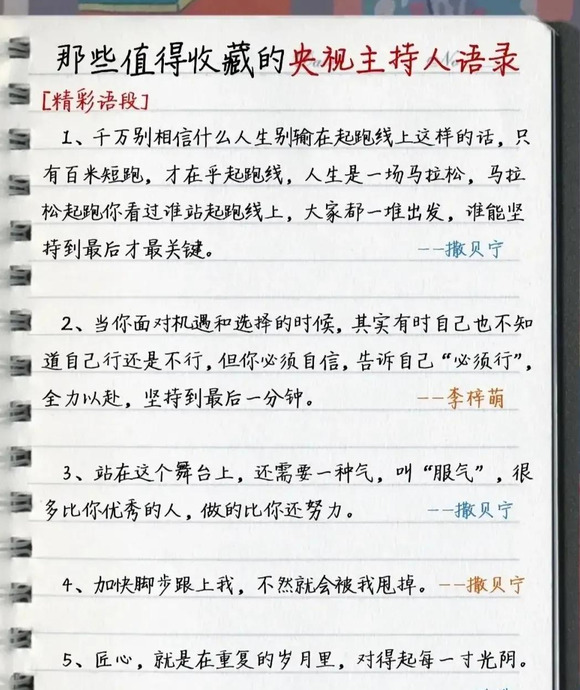 那些值得收藏的央视主持人语录
[精彩语段]
1、千万别相信什么人生别输在起跑线上这样的话，只
有百米短跑，才在乎起跑线，人生是一场马拉松，马拉
松起跑你看过谁站起跑线上，大家都一堆出发，谁能坚
持到最后才最关键。 --撒贝宁
2、当你面对机遇和选择的时候，其实有时自己也不知
道自己行还是不行，但你必须自信，告诉自己“必须行”，
全力以赴，坚持到最后一分钟。 --李梓萌
3、站在这个舞台上，还需要一种气，叫“服气”，很
多比你优秀的人，做的比你还努力。 --撒贝宁
4、加快脚步跟上我，不然就会被我甩掉。--撒贝宁
5、匠心，就是在重复的岁月里，对得起每一寸光阴。